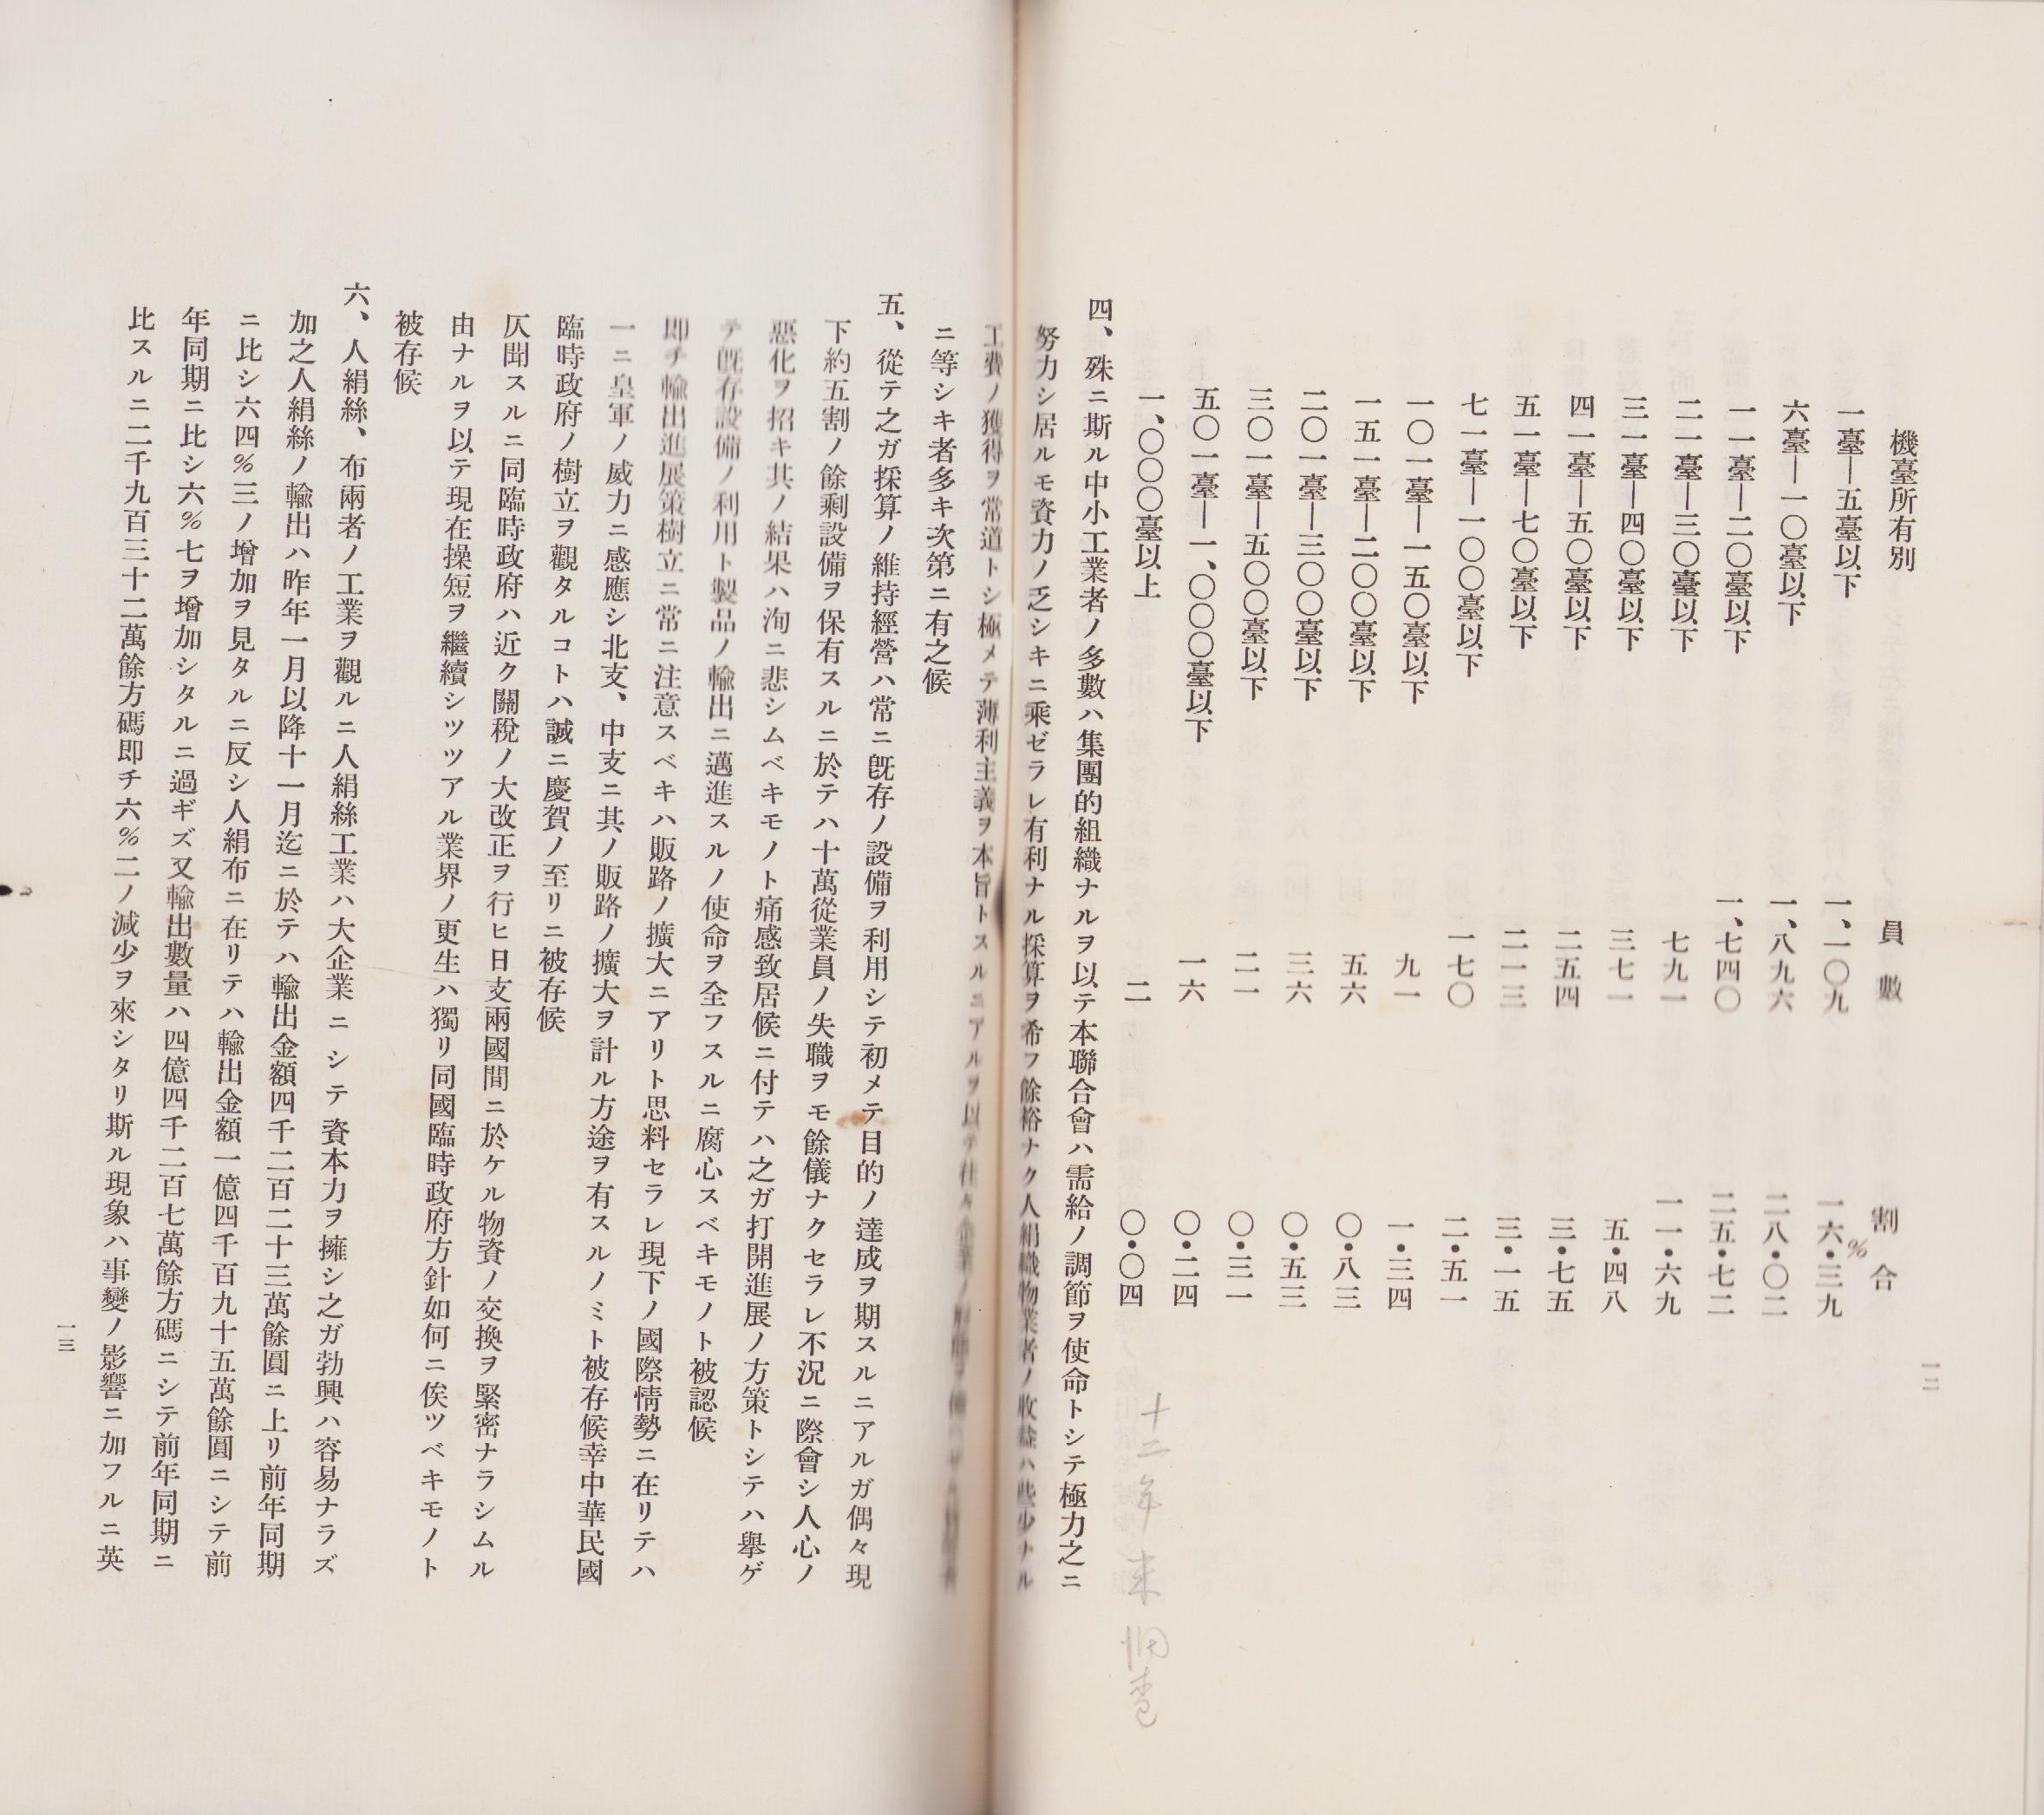 一二
機臺所有別 員數 割合
%
一臺―五臺以下 一、一〇九 一六・三九
六臺―一〇臺以下 一、八九六 二八・〇二
一一臺―二〇臺以下 一、七四〇 二五・七二
二一臺―三〇臺以下 七九一 一一・六九
三一臺―四〇臺以下 三七一 五・四八
四一臺―五〇臺以下 二五四 三・七五
五一臺―七〇臺以下 二一三 三・一五
七一臺―一〇〇臺以下 一七〇 二・五一
一〇一臺―一五〇臺以下 九一 一・三四
一五一臺―二〇〇臺以下 五六 〇・八三
二〇一臺―三〇〇臺以下 三六 〇・五三
三〇一臺―五〇〇臺以下 二一 〇・三一
五〇一臺―一、〇〇〇臺以下 一六 〇・二四
一、〇〇〇臺以上 二 〇・〇四
十二年末調査
四、殊ニ斯ル中小工業者ノ多數ハ集團的組織ナルヲ以テ本聯合會ハ需給ノ調節ヲ使命トシテ極力之ニ
努力シ居ルモ資力ノ乏シキニ乘ゼラレ有利ナル採算ヲ希フ餘裕ナク人絹織物業者ノ收益ハ些少ナル
工費ノ獲得ヲ常道トシ極メテ薄利主義ヲ本旨トスルニアルヲ以テ往々企業ノ
ニ等シキ者多キ次第ニ有之候
五、從テ之ガ採算ノ維持經營ハ常ニ既存ノ設備ヲ利用シテ初メテ目的ノ達成ヲ期スルニアルガ偶々現
下約五割ノ餘剩設備ヲ保有スルニ於テハ十萬從業員ノ失職ヲモ餘儀ナクセラレ不況ニ際會シ人心ノ
惡化ヲ招キ其ノ結果ハ洵ニ悲シムベキモノト痛感致居候ニ付テハ之ガ打開進展ノ方策トシテハ擧ゲ
テ既存設備ノ利用ト製品ノ輸出ニ邁進スルノ使命ヲ全フスルニ腐心スベキモノト被認候
即チ輸出進展策樹立ニ常ニ注意スベキハ販路ノ擴大ニアリト思料セラレ現下ノ國際情勢ニ在リテハ
一ニ皇軍ノ威力ニ感應シ北支、中支ニ其ノ販路ノ擴大ヲ計ル方途ヲ有スルノミト被存候幸中華民國
臨時政府ノ樹立ヲ觀タルコトハ誠ニ慶賀ノ至リニ被存候
仄聞スルニ同臨時政府ハ近ク關稅ノ大改正ヲ行ヒ日支兩國間ニ於ケル物資ノ交換ヲ緊密ナラシムル
由ナルヲ以テ現在操短ヲ繼續シツツアル業界ノ更生ハ獨リ同國臨時政府方針如何ニ俟ツベキモノト
被存候
六、人絹絲、布兩者ノ工業ヲ觀ルニ人絹絲工業ハ大企業ニシテ資本力ヲ擁シ之ガ勃興ハ容易ナラズ
加之人絹絲ノ輸出ハ昨年一月以降十一月迄ニ於テハ輸出金額四千二百二十三萬餘圓ニ上リ前年同期
ニ比シ六四%三ノ增加ヲ見タルニ反シ人絹布ニ在リテハ輸出金額一億四千百九十五萬餘圓ニシテ前
年同期ニ比シ六%七ヲ增加シタルニ過ギズ又輸出數量ハ四億四千二百七萬餘方碼ニシテ前年同期ニ
比スルニ二千九百三十二萬餘方碼即チ六%二ノ減少ヲ來シタリ斯ル現象ハ事變ノ影響ニ加フルニ英
一三